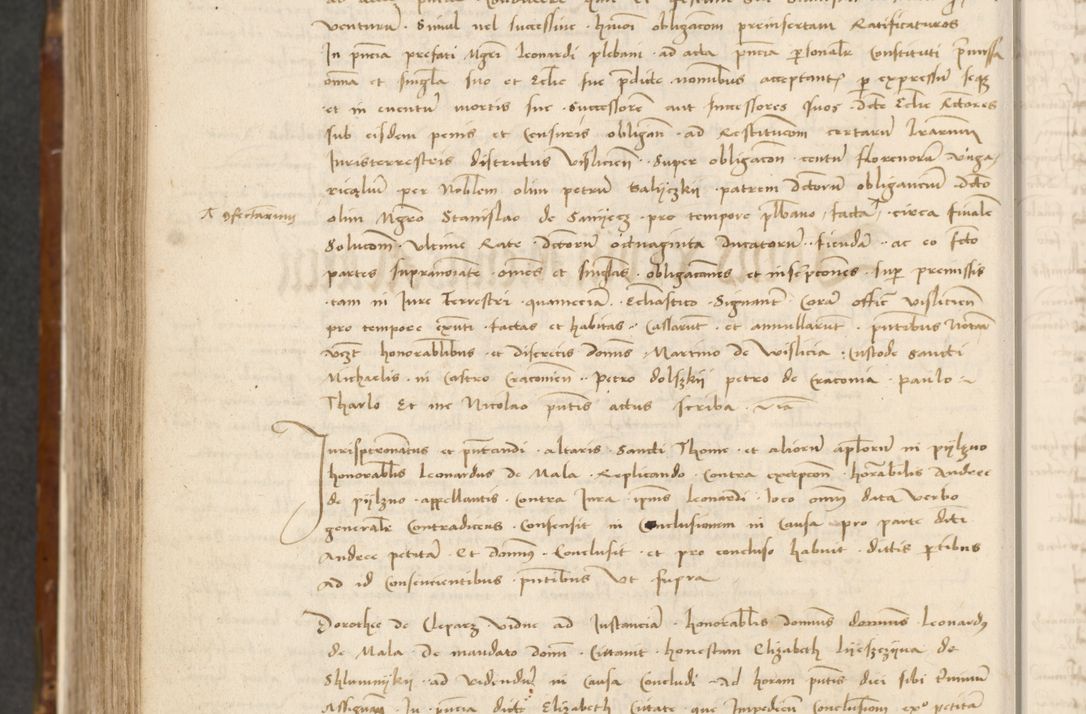 venturum . Simul vel successive . hmoi obligacom preinsertam Ratificaturos
In pntia prefati Mgri Leonardi plebani . ad acta pntia personalr Constituti
omnia et singla suo et Ecclie sue predicte nominibus acceptantis per expressum
et in eventum mortis sue . Successorem aut Successores suos . Dicte Ecclie Rectores
sub eisdem penis et Censuris obligan . ad Restitucom certarum lrarum
Juristerrestris districtus Vislicien . Super obligacon centum florenorum Unga
ricaliu per Noblem olim petrum Galyczkij . patrem dictorum obligancium . dicto
⁁ confectarum
olim Mgro Stanislao de Sanyecz . pro tempore plbano . facta . circa finale
Solucom . ultime Rate . dictorum octuaginta Ducatorum . fiendam . ac eo facto
partes supranoiate . omes et singlas . obligacones et inscripcones . super premissis
tam in Jure Terrestri . quamecia . Ecclesiastico . Signanter Coram offic vislicien
pro tempore exnti . factas et habitas . Cassarunt . et annullarunt . pntibus
vizt honorablibus et discretis domis . Martino de Wislicia . Custode Sancti
Michaelis . in Castro Cracovien . Petro dolszkij petro de Cracovia . paulo
Tharlo Et me Nicolao pntis actus scriba
Jurispatronatus et pntandi . altaris . Sancti Thome . et aliorum aplorum in pijlzno
honorablis Leonardus de Mala . Replicando . Contra exepcom . honorabilis Andree
de pijlzno . appellantis . Contra Jura . ipius Leonardi . loco omnium data verbo
generalr Contradicens . Consensit in Conclusionem in Causa . pro parte dicti
Andree petitam . Et Dominus . Conclusit . et pro concluso habuit . dictis partibus
ad id Consencientibus . pntibus Ut supra
Dorothee de Cleparz vidue ad Instanciam . honorablis dominus dominus . Leonardus
de Mala . De mandato domi . Cittavit . honestam Elizabeth de
. ad videndum in Causa Concludi . Ad horam pntis diei sibi
Assignam . In pntia dicte Elizabeth Citate . que Impedien Conclusiom petitam